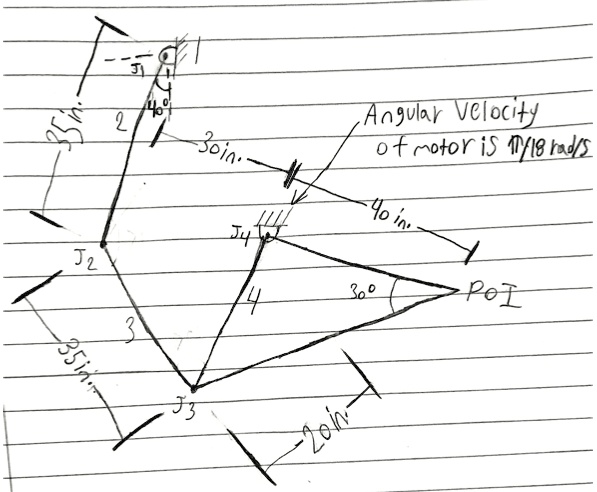 1
J1
40°
35in.
2
Angular Velocity
of motor is π/18 rad/s
30in.
40in.
J4
J2
30°
POI
4
3
35in.
J3
20in.